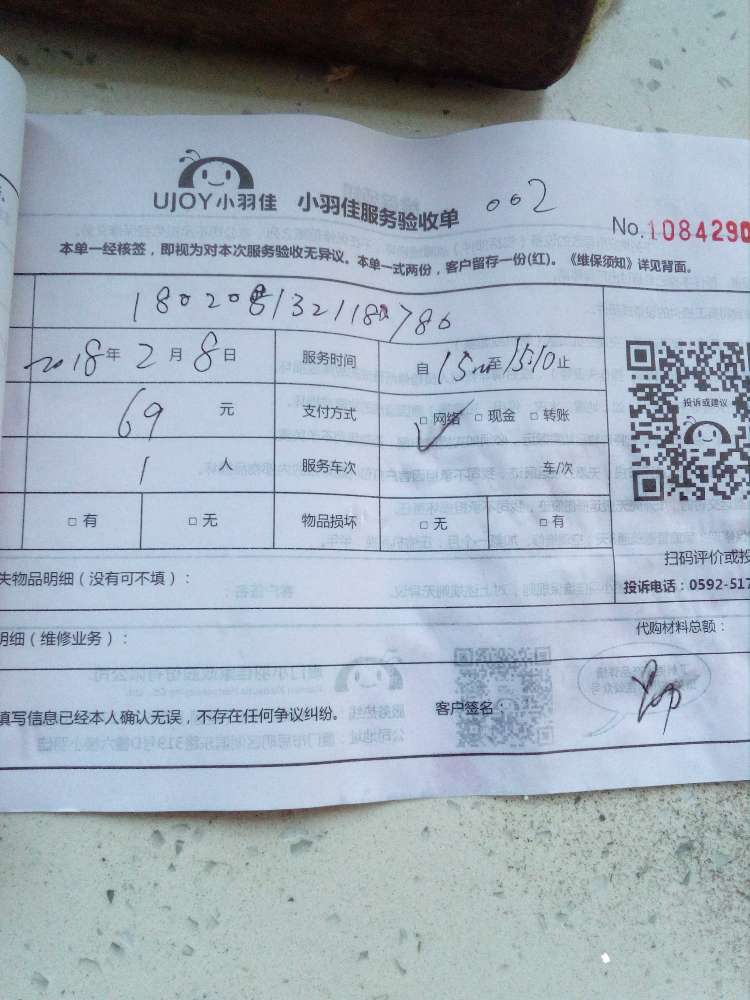 UJOY小羽佳 小羽佳服务验收单 002
No.1084290
本单一经核签，即视为对本次服务验收无异议。本单一式两份，客户留存一份(红)。《维保须知》详见背面。
2018年2月8日 服务时间 自1500至1510止
投诉或建议
69元 支付方式 □网络 □现金 □转账
1人 服务车次 车/次
□有 □无 物品损坏 □无 □有
扫码评价或投
失物品明细（没有可不填）： 投诉电话：0592-517
明细（维修业务）： 代购材料总额：
填写信息已经本人确认无误，不存在任何争议纠纷。 客户签名：